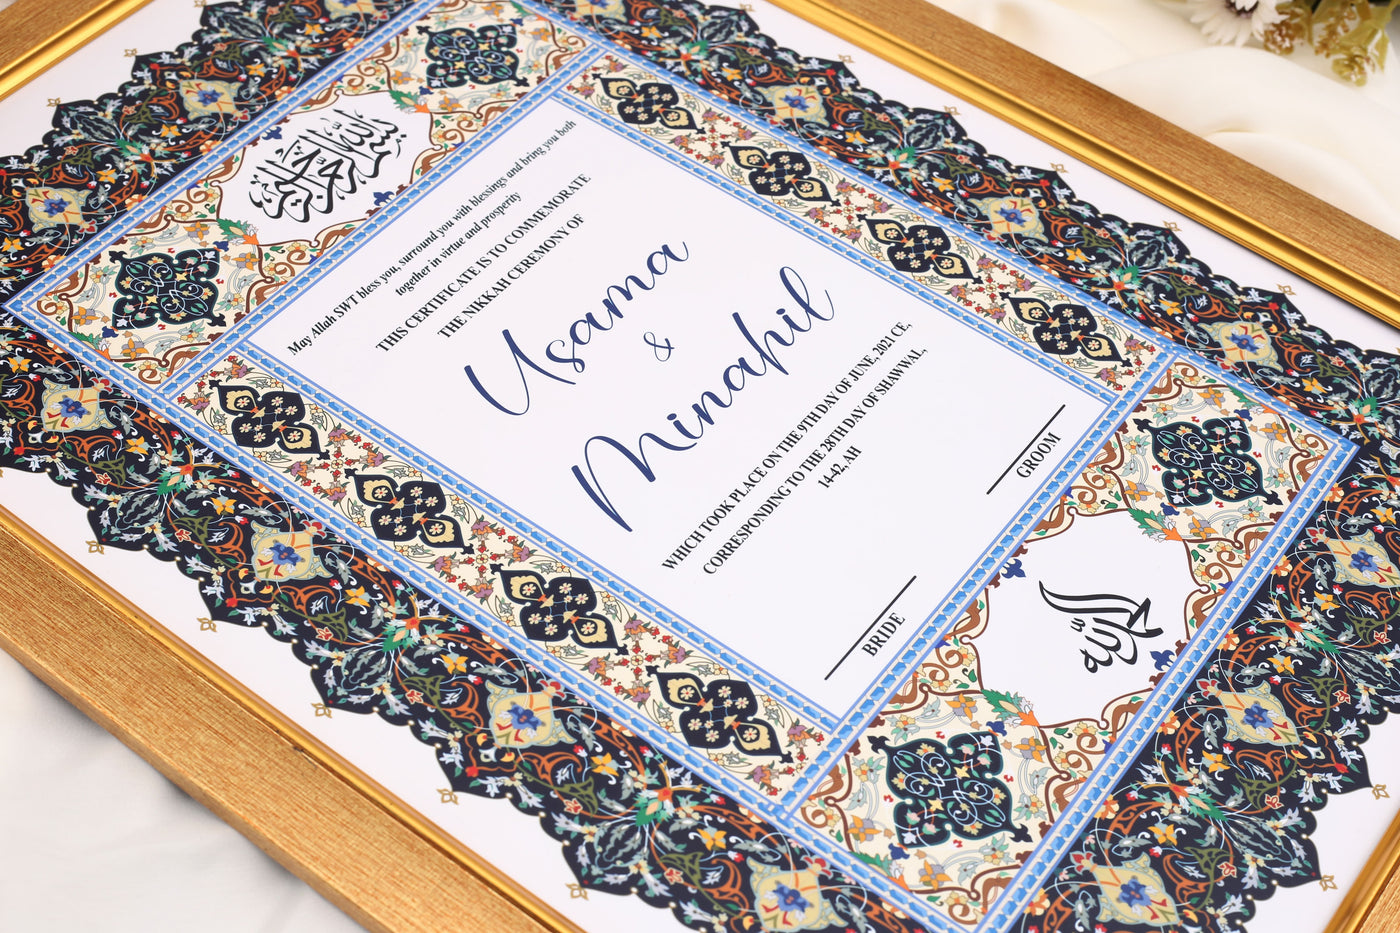 بسم الله الرحمن الرحيم
May Allah SWT bless you, surround you with blessings and bring you both
together in virtue and prosperity
THIS CERTIFICATE IS TO COMMEMORATE
THE NIKKAH CEREMONY OF
Usama
&
Minahil
WHICH TOOK PLACE ON THE 9TH DAY OF JUNE, 2021 CE,
CORRESPONDING TO THE 28TH DAY OF SHAWWAL,
1442, AH
BRIDE
GROOM
الحمد لله